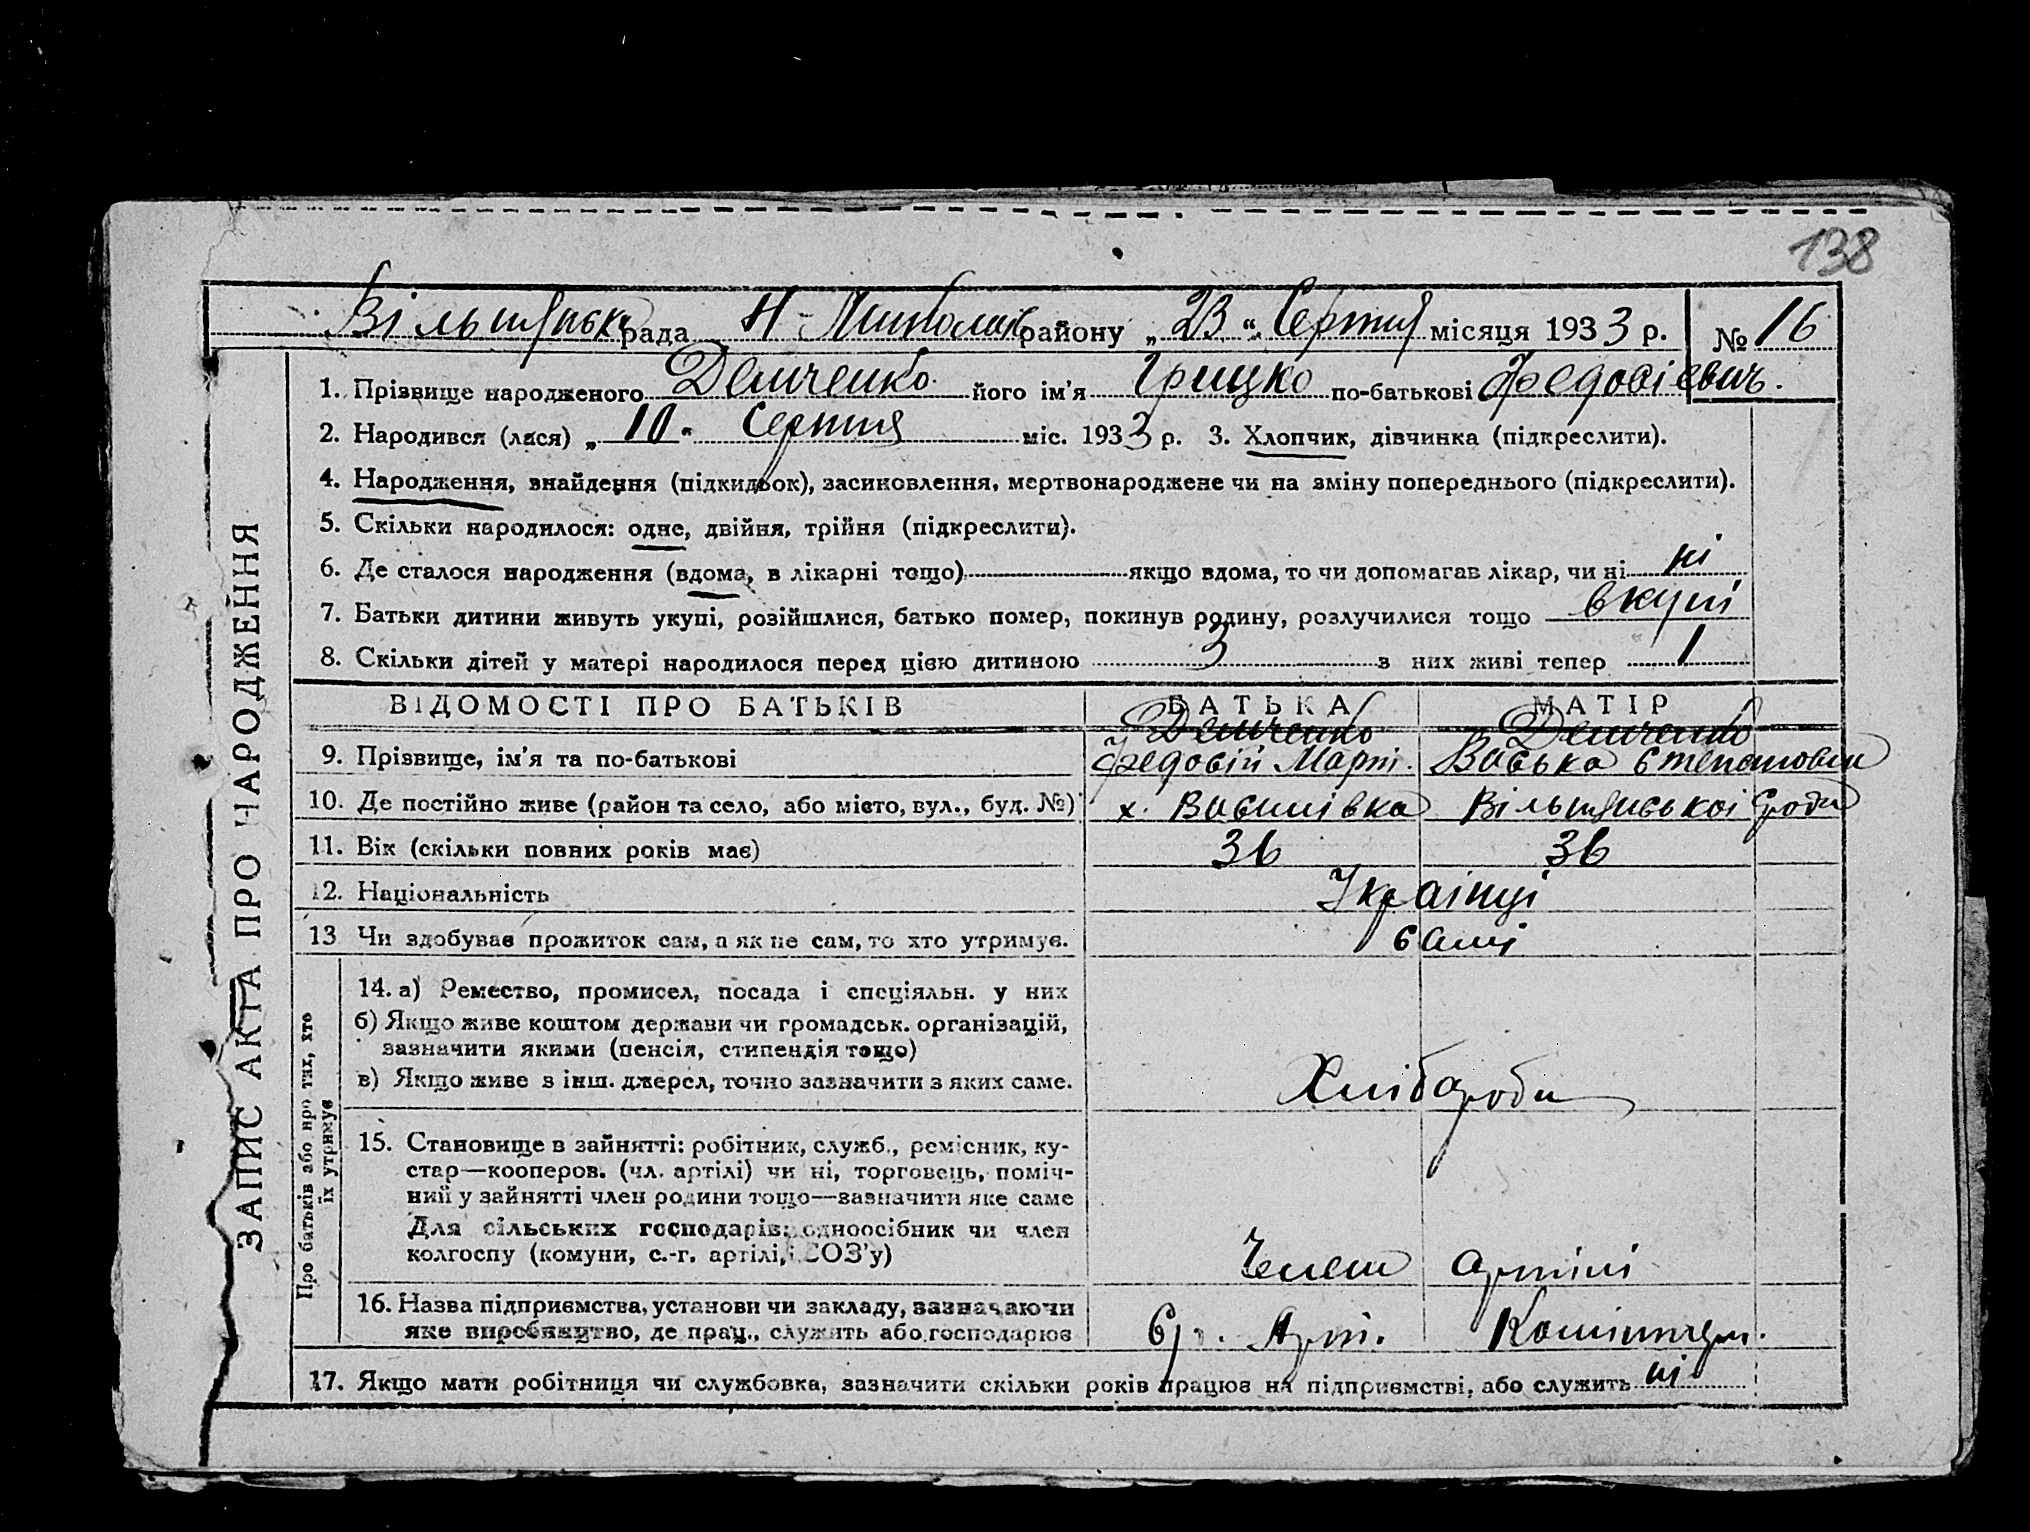 138
Вільшанська рада Н-Миколаїв району „ 23 “ Серпня місяця 1933 р. № 16
1. Прізвище народженого Демченко його ім'я Грицко по-батькові Федосієвич.
2. Народився (лася) „ 10 “ Серпня міс. 1933 р. 3. Хлопчик, дівчинка (підкреслити).
4. Народження, внайдення (підкидьок), засиновлення, мертвонароджене чи на зміну попереднього (підкреслити).
5. Скільки народилося: одне, двійня, трійня (підкреслити).
6. Де сталося народження (вдома, в лікарні тощо) якщо вдома, то чи допомагав лікар, чи ні ні
7. Батьки дитини живуть укупі, розійшлися, батько помер, покинув родину, розлучилися тощо вкупі
8. Скільки дітей у матері народилося перед цією дитиною 3 з них живі тепер 1
ВІДОМОСТІ ПРО БАТЬКІВ БАТЬКА МАТІР
Демченко Демченко
9. Прізвище, ім'я та по-батькові Федосій Март. Васька Степановна
10. Де постійно живе (район та село, або місто, вул., буд. №) х. Василівка Вільшанської Сради
11. Вік (скільки повних років має) 36 36
12. Національність Українці
13 Чи здобуває прожиток сам, а як не сам, то хто утримує. самі
14. а) Ремество, промисел, посада і спеціяльн. у них
б) Якщо живе коштом держави чи громадськ. організацій,
зазначити якими (пенсія, стипендія тощо)
в) Якщо живе з інш. джерел, точно зазначити з яких саме.
Хлібороби
15. Становище в зайнятті: робітник, служб., ремісник, ку-
стар—кооперов. (чл. артілі) чи ні, торговець, поміч-
ний у зайнятті член родини тощо—зазначити яке саме
Для сільських господарів: одноосібник чи член
колгоспу (комуни, с.-г. артілі, СОЗ'у)
Члени артілі
16. Назва підприємства, установи чи закладу, зазначаючи
яке виробництво, де прац., служить або господарює Арт. Комінтерн.
17. Якщо мати робітниця чи службовка, зазначити скільки років працює на підприємстві, або служить ні
ЗАПИС АКТА ПРО НАРОДЖЕННЯ
Про батьків або про тих, хто
їх утримує